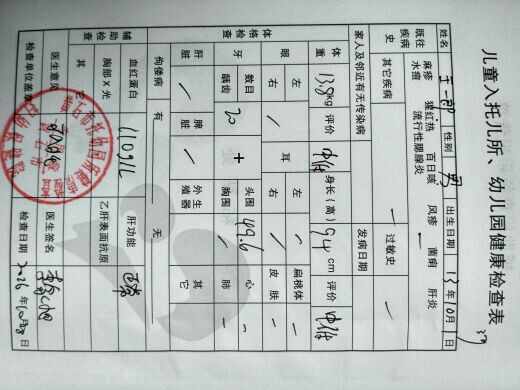 儿童入托儿所、幼儿园健康检查表
姓名 性别 男 出生日期 13年10月1日
既往疾病 麻疹 猩红热 百日咳 风疹 菌痢 肝炎
水痘 流行性腮腺炎
史 其它疾病 过敏史
家人及邻近有无传染病 发病日期
体格检查 体重 13.8kg 评价 中 身长(高) 94cm 评价 中
眼 左 右 耳 左 右 扁桃体 皮肤
牙 数目 20 龋齿 头围 49.6 胸围 心 肺
肝脏 脾脏 外生殖器 其它
佝偻病 有 无
辅助检查 血红蛋白 110g/L 肝功能 正常
胸部X光 乙肝表面抗原
其它
医生意见 医生签名
检查单位盖章 检查日期 2016年10月 日